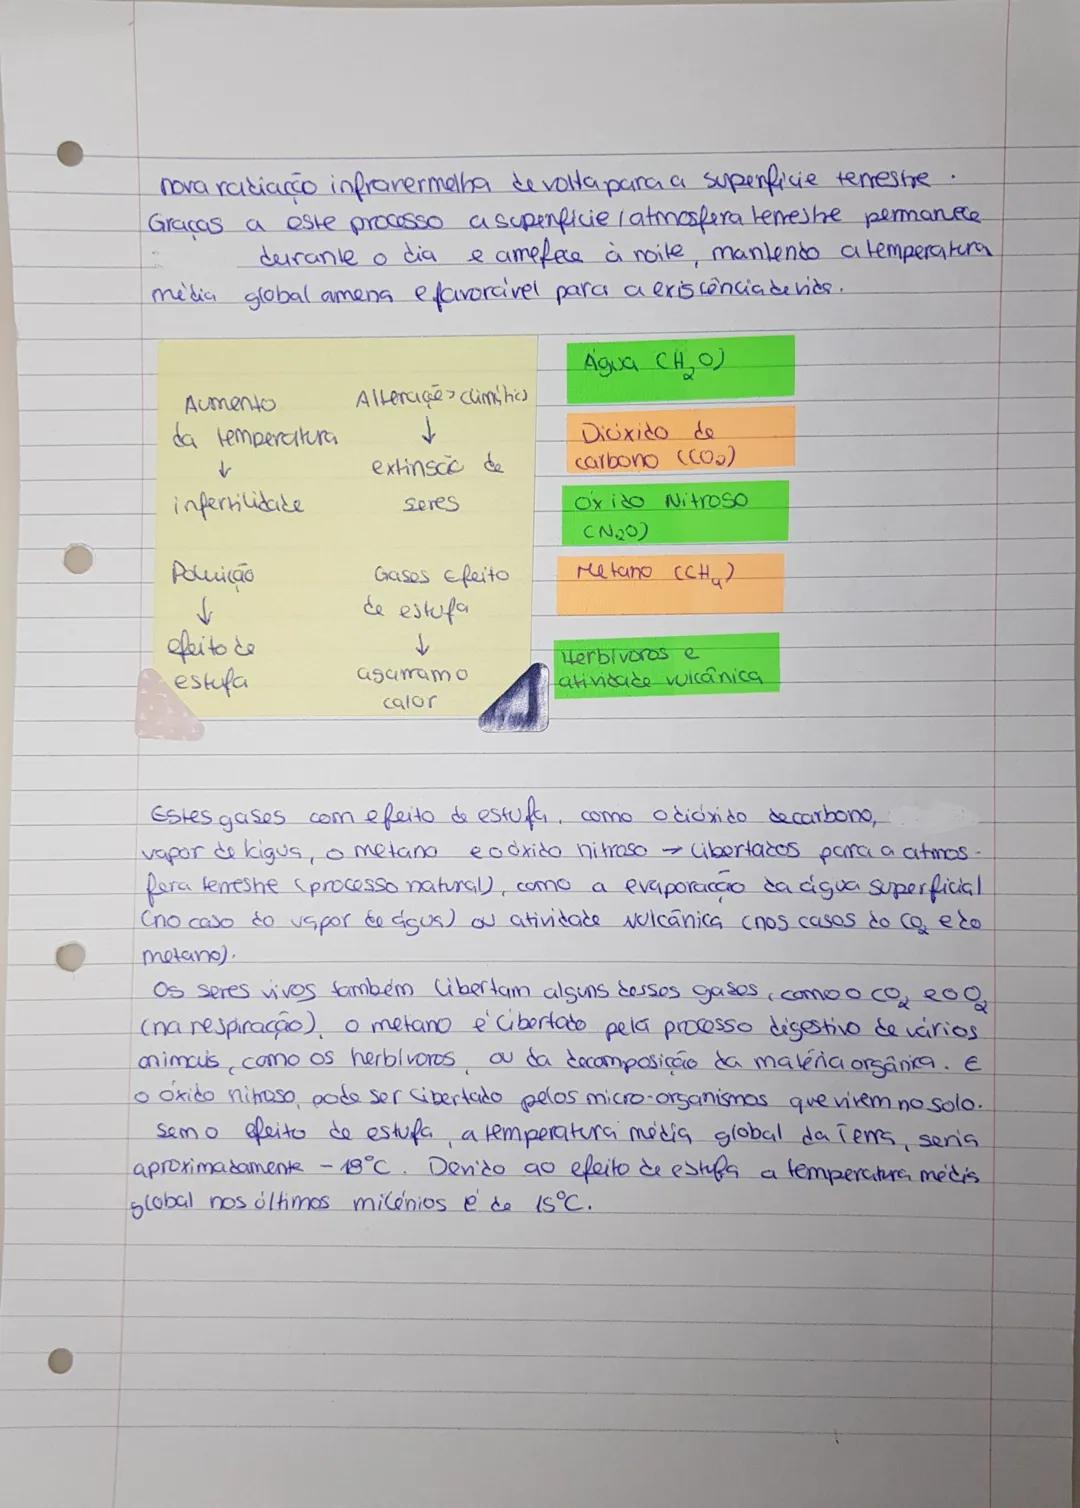 nova radiação infravermelha de volta para a superfície terrestre.
Graças a este processo a superfície/atmosfera terrestre permanece
durante o dia e arrefece à noite, mantendo a temperatura
média global amena e favorável para a existência de vida.
Aumento
da temperatura
↓
infertilidade
Alterações climáticas
↓
extinsão de
seres
Poluição
↓
efeito de
estufa
Gases efeito
de estufa
↓
agarram o
calor
Água (H₂O)
Dióxido de
carbono (CO₂)
Óxido Nitroso
(N₂O)
Metano (CH₄)
Herbívoros e
atividade vulcânica
Estes gases com efeito de estufa, como o dióxido de carbono,
vapor de água, o metano e o óxido nitroso → libertados para a atmos-
fera terrestre (processo natural), como a evaporação da água superficial
(no caso do vapor de água) ou atividade vulcânica (nos casos do CO₂ e do
metano).
Os seres vivos também libertam alguns desses gases, como o CO₂ e o O₂
(na respiração), o metano é libertado pela processo digestivo de vários
animais, como os herbívoros, ou da decomposição da matéria orgânica. E
o óxido nitroso, pode ser libertado pelos micro-organismos que vivem no solo.
Sem o efeito de estufa, a temperatura média global da Terra, seria
aproximadamente -18°C. Devido ao efeito de estufa a temperatura média
global nos últimos milénios é de 15°C.